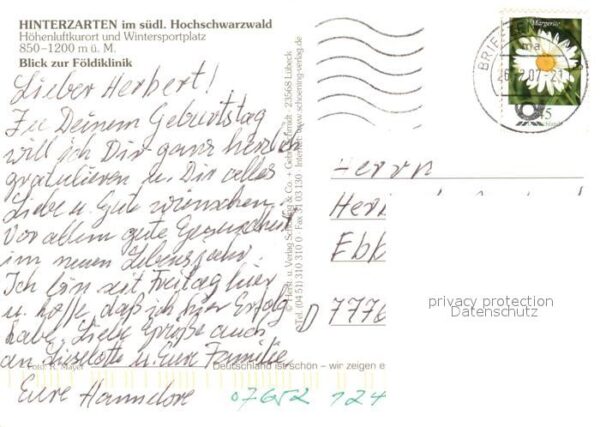 HINTERZARTEN im südl. Hochschwarzwald
Höhenluftkurort und Wintersportplatz
850–1200 m ü. M.
Blick zur Földiklinik
Lieber Herbert!
Zu Deinem Geburtstag
will ich Dir ganz herzlich
gratulieren u. Dir alles
Liebe u. Gute wünschen.
Vor allem gute Gesundheit
im neuen Lebensjahr.
Ich bin seit Freitag hier
u. hoffe, daß ich hier Erfolg
habe. Liebe Grüße auch
an Lieselotte u. Eure Familie
Foto: R. Mayer
Deutschland ist schön – wir zeigen e
Eure Hannelore
07652 124
© Herst. u. Verlag Schöning & Co. + Gebr. Schmidt · 23568 Lübeck
Tel. (04 51) 310 310 · Fax 31 03 130 · Internet: www.schoening-verlag.de
Margerite
BRIEFZEN
07-21
45
Herrn
Her
Ebb
D 7776
privacy protection
Datenschutz